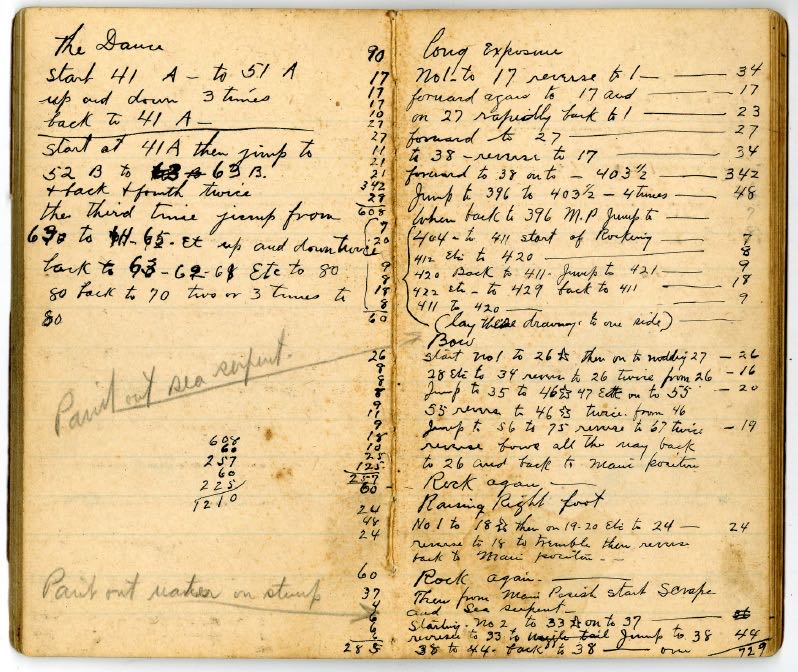 The Dance
start 41 A - to 51 A
up and down 3 times
back to 41 A -
start at 41A then jump to
52 B to 63 B.
+ back + fourth twice
the third time jump from
630 to 65 - Etc up and down twice
back to 63 - 62 - 61 Etc to 80
80 back to 70 two or 3 times to
80
Paint out sea serpent.
608
60
257
60
225
1210
Paint out water on stump
90
17
17
17
10
27
27
11
21
21
342
28
608
7
20
9
9
18
8
60
26
8
8
8
9
11
9
18
10
25
125
257
60
24
48
24
60
37
4
6
6
285
Long Exposure
No1 - to 17 reverse to 1 - 34
forward again to 17 and - 17
on 27 rapidly back to 1 - 23
forward to 27 - 27
to 38 - reverse to 17 - 34
forward to 38 on to - 403 1/2 - 342
Jump to 396 to 403 1/2 - 4 times - 48
When back to 396 M.P Jump to - 7
404 - to 411 start of Rocking - 7
412 Etc to 420 - 8
420 Back to 411 - Jump to 421 - 9
422 etc - to 429 back to 411 - 18
411 to 420 - 9
(lay these drawings to one side)
Bow
start No1 to 26 then on to nodding 27 - 26
28 Etc to 34 reverse to 26 twice from 26 - 16
Jump to 35 to 46 47 Etc on to 55 - 20
55 reverse to 46 twice. from 46
Jump to 56 to 75 reverse to 67 twice - 19
reverse bows all the way back
to 26 and back to Main position
Rock again -
Raising Right foot
No 1 to 18 then on 19-20 Etc to 24 - 24
reverse to 18 to tremble then reverse
back to Main position -
Rock again -
Then from Main Posish start Scrape
and Sea serpent -
Starting - No 2 to 33 on to 37
reverse to 33 to wiggle tail Jump to 38 44
38 to 44 - back to 38 - one 929